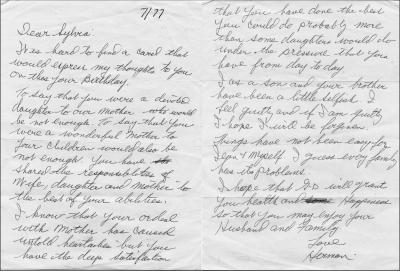 7/77
Dear Sylvia:
It is hard to find a card that
would express my thoughts to you
on this your Birthday.
To say that you were a devoted
daughter to our Mother would
be not enough. to say that you
were a wonderful Mother to
your children would also be
not enough You have
shared the responsibilities of
Wife, daughter and mother to
the best of your abilities.
I know that your ordeal
with Mother has caused
untold heartaches but you
have the deep satisfaction
that you have done the best
you could do probably more
than some daughters would do
under the pressure that you
have from day to day
I as a son and your brother
have been a little selfish I
feel guilty and if I am guilty
I hope I will be forgiven
things have not been easy for
Jean & Myself. I guess every family
has its problems.
I hope that G-D will grant
you health and Happiness
so that you may enjoy your
Husband and Family
Love
Herman